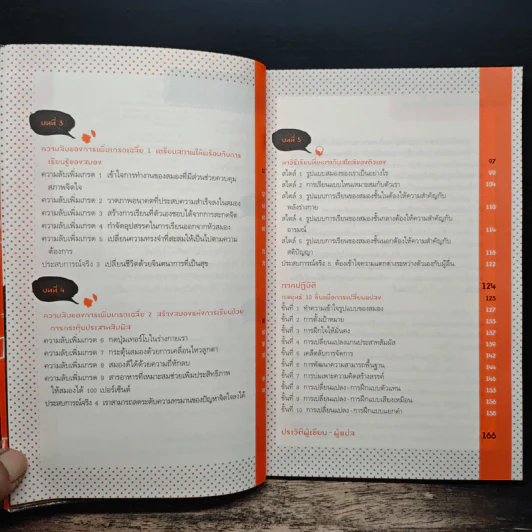 บทที่ 3
ความลับของการเพิ่มเกรดเฉลี่ย 1 เตรียมสภาพให้พร้อมกับการ
เรียนรู้ของสมอง
ความลับเพิ่มเกรด 1 เข้าใจการทำงานของสมองที่มีส่วนช่วยควบคุม
สภาพจิตใจ
ความลับเพิ่มเกรด 2 วาดภาพอนาคตที่ประสบความสำเร็จลงในสมอง
ความลับเพิ่มเกรด 3 สร้างการเรียนที่ตัวเองชอบได้จากการสะกดจิต
ความลับเพิ่มเกรด 4 กำจัดอุปสรรคในการเรียนออกจากหัวสมอง
ความลับเพิ่มเกรด 5 เปลี่ยนความทรงจำที่สะสมให้เป็นไปตามความ
ต้องการ
ประสบการณ์จริง 3 เปลี่ยนชีวิตด้วยจินตนาการที่เป็นสุข
บทที่ 4
ความลับของการเพิ่มเกรดเฉลี่ย 2 สร้างสมองแห่งการเรียนด้วย
การกระตุ้นประสาทสัมผัส
ความลับเพิ่มเกรด 6 กดปุ่มเทอร์โบในร่างกายเรา
ความลับเพิ่มเกรด 7 กระตุ้นสมองด้วยการเคลื่อนไหวลูกตา
ความลับเพิ่มเกรด 8 สมองดีได้ด้วยความถี่ทักลบ
ความลับเพิ่มเกรด 9 สารอาหารที่เหมาะสมช่วยเพิ่มประสิทธิภาพ
ให้สมองได้ 100 เปอร์เซ็นต์
ประสบการณ์จริง 4 เราสามารถลดระดับความทรมานของปัญหาจิตใจลงได้
บทที่ 5
หาวิธีเรียนที่เหมาะกับสไตล์ของตัวเอง 97
สไตล์ 1 รูปแบบสมองของเราเป็นอย่างไร 99
สไตล์ 2 การเรียนแบบไหนเหมาะสมกับตัวเรา 104
สไตล์ 3 รูปแบบการเรียนของสมองชั้นในต้องให้ความสำคัญกับ
พลังร่างกาย
สไตล์ 4 รูปแบบการเรียนของสมองชั้นกลางต้องให้ความสำคัญกับ
อารมณ์ 114
สไตล์ 5 รูปแบบการเรียนของสมองชั้นนอกต้องให้ความสำคัญกับ
สติปัญญา 118
ประสบการณ์จริง 5 ต้องเข้าใจความแตกต่างระหว่างตัวเองกับผู้อื่น 122
ภาคปฏิบัติ 124
กลยุทธ์ 10 ขั้นเพื่อการเปลี่ยนแปลง 125
ขั้นที่ 1 ทำความเข้าใจรูปแบบของสมอง 127
ขั้นที่ 2 การตั้งเป้าหมาย
ขั้นที่ 3 การฝึกใจให้มั่นคง
ขั้นที่ 4 การเปลี่ยนแปลงผ่านประสาทสัมผัส
ขั้นที่ 5 เคล็ดลับการจัดการ
ขั้นที่ 6 การพัฒนาความสามารถพื้นฐาน 144
ขั้นที่ 7 การบ่มเพาะความคิดสร้างสรรค์
ขั้นที่ 8 การเปลี่ยนแปลง-การฝึกแบบตัวแทน
ขั้นที่ 9 การเปลี่ยนแปลง-การฝึกแบบเสียงเหมือน
ขั้นที่ 10 การเปลี่ยนแปลง-การฝึกแบบแยกคำ
ประวัติผู้เขียน-ผู้แปล 166